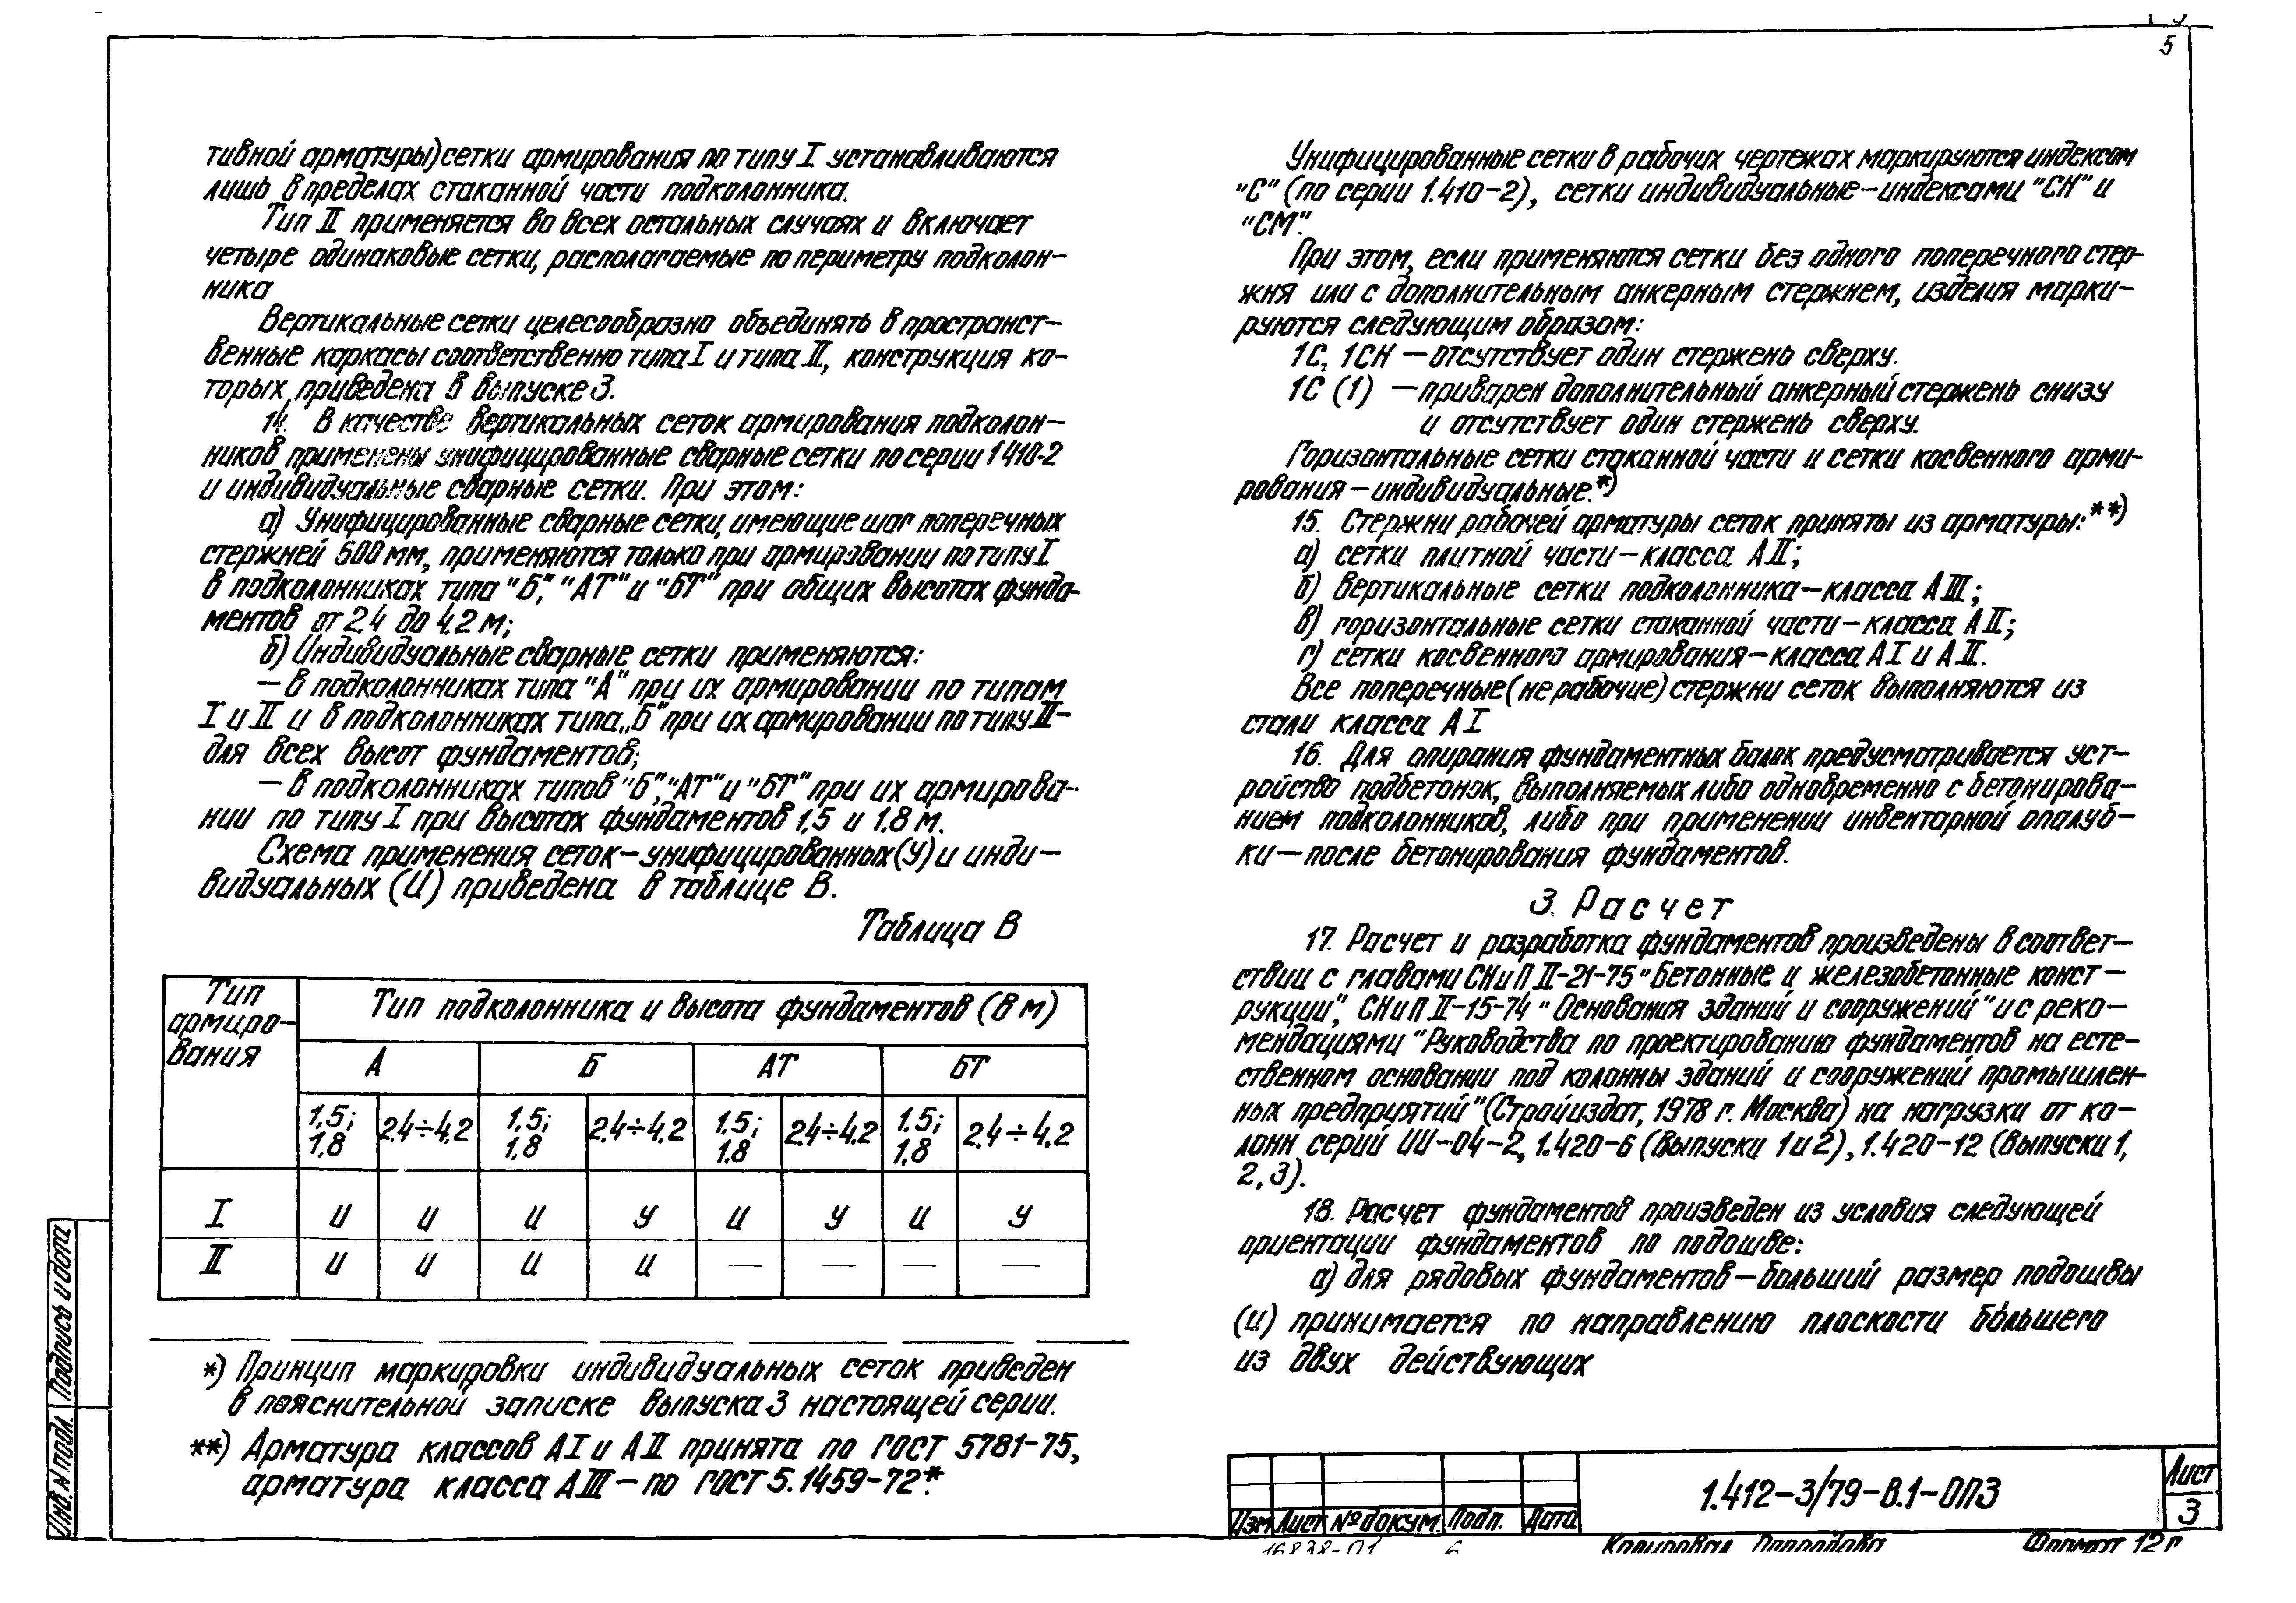 5
тивной арматуры) сетки армирования по типу I устанавливаются
лишь в пределах стаканной части подколонника.
Тип II применяется во всех остальных случаях и включает
четыре одинаковые сетки, располагаемые по периметру подколон-
ника
Вертикальные сетки целесообразно объединять в пространст-
венные каркасы соответственно типа I и типа II, конструкция ко-
торых приведена в выпуске 3.
14. В качестве вертикальных сеток армирования подколон-
ников применены унифицированные сварные сетки по серии 1410-2
и индивидуальные сварные сетки. При этом:
а) Унифицированные сварные сетки, имеющие шаг поперечных
стержней 500 мм, применяются только при армировании по типу I
в подколонниках типа "Б", "АТ" и "БТ" при общих высотах фунда-
ментов от 2.4 до 4.2 м;
б) Индивидуальные сварные сетки применяются:
— в подколонниках типа "А" при их армировании по типам
I и II и в подколонниках типа „Б" при их армировании по типу II-
для всех высот фундаментов;
— в подколонниках типов "Б", "АТ" и "БТ" при их армирова-
нии по типу I при высотах фундаментов 1.5 и 1.8 м.
Схема применения сеток-унифицированных (У) и инди-
видуальных (И) приведена в таблице В.
Таблица В
Тип
армиро-
вания
Тип подколонника и высота фундаментов (в м)
А Б АТ БТ
1.5; 1.8 2.4÷4.2 1.5; 1.8 2.4÷4.2 1.5; 1.8 2.4÷4.2 1.5; 1.8 2.4÷4.2
I И И И У И У И У
II И И И И — — — —
*) Принцип маркировки индивидуальных сеток приведен
в пояснительной записке выпуска 3 настоящей серии.
**) Арматура классов АI и АII принята по ГОСТ 5781-75,
арматура класса АIII – по ГОСТ 5.1459-72*.
Унифицированные сетки в рабочих чертежах маркируются индексом
"С" (по серии 1.410-2), сетки индивидуальные-индексами "СН" и
"СМ".
При этом, если применяются сетки без одного поперечного стер-
жня или с дополнительным анкерным стержнем, изделия марки-
руются следующим образом:
1С, 1СН — отсутствует один стержень сверху.
1С (1) — приварен дополнительный анкерный стержень снизу
и отсутствует один стержень сверху.
Горизонтальные сетки стаканной части и сетки косвенного арми-
рования - индивидуальные.*)
15. Стержни рабочей арматуры сеток приняты из арматуры:**)
а) сетки плитной части – класса АII;
б) вертикальные сетки подколонника – класса АIII;
в) горизонтальные сетки стаканной части – класса АII;
г) сетки косвенного армирования – класса АI и АII.
Все поперечные (не рабочие) стержни сеток выполняются из
стали класса АI
16. Для опирания фундаментных балок предусматривается уст-
ройство подбетонок, выполняемых либо одновременно с бетонирова-
нием подколонников, либо при применении инвентарной опалуб-
ки — после бетонирования фундаментов.
3. Расчет
17. Расчет и разработка фундаментов произведены в соответ-
ствии с главами СНиП II-21-75 "Бетонные и железобетонные конст-
рукции", СНиП II-15-74 "Основания зданий и сооружений" и с реко-
мендациями "Руководства по проектированию фундаментов на есте-
ственном основании под колонны зданий и сооружений промышлен-
ных предприятий" (Стройиздат, 1978 г. Москва) на нагрузки от ко-
лонн серий ИИ-04-2, 1.420-6 (выпуски 1 и 2), 1.420-12 (выпуски 1,
2, 3).
18. Расчет фундаментов произведен из условия следующей
ориентации фундаментов по подошве:
а) для рядовых фундаментов – больший размер подошвы
(и) принимается по направлению плоскости бо́льшего
из двух действующих
Инв. N подл. Подпись и дата
Изм Лист № докум. Подп. Дата
1.412-3/79-В.1-ОПЗ
Лист
3
16838-01 6
Копировал
Формат 12г